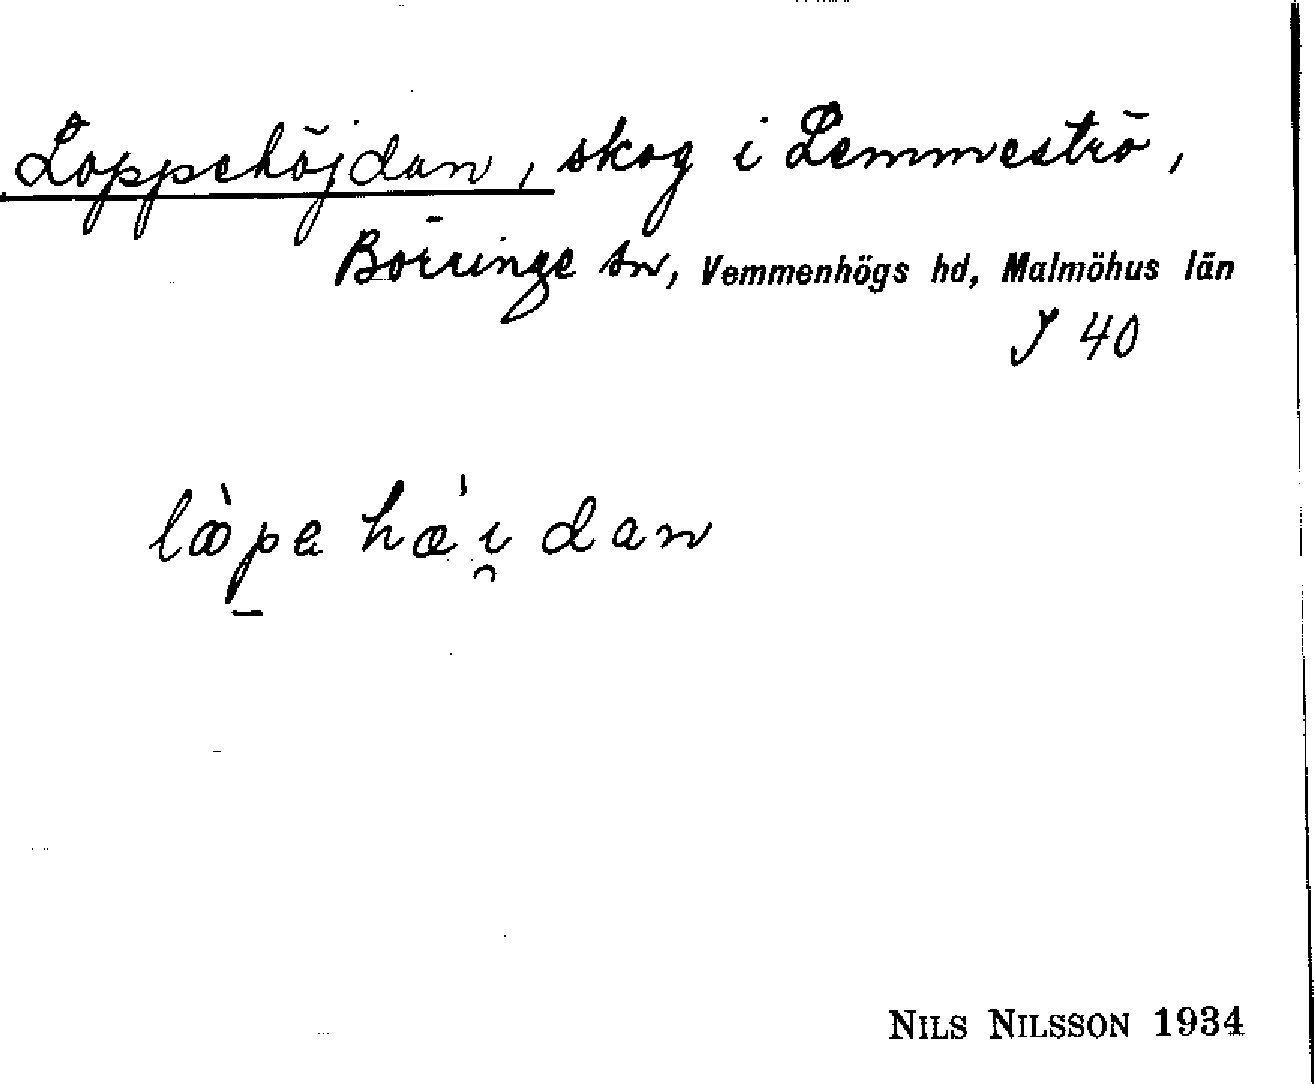 Loppehöjdan, skog i Lemmeströ,
Börringe sn, Vemmenhögs hd, Malmöhus län
J 40
lòpa hæ'i̯dan
NILS NILSSON 1934